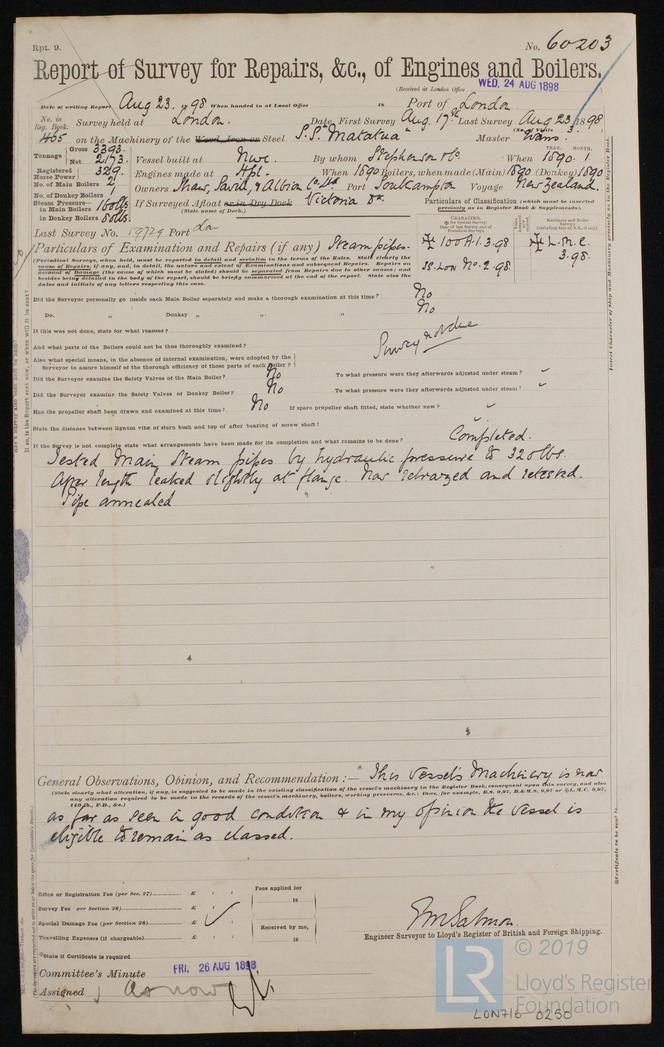 Rpt. 9.
No. 60203
Report of Survey for Repairs, &c., of Engines and Boilers.
(Received at London Office WED. 24 AUG 1898
Date of writing Report Aug 23. 1898 When handed in at Local Office 18 Port of London
No. in Reg. Book. Survey held at London. Date, First Survey Aug. 17th Last Survey Aug 23 1898
(No. of Visits 3.
465 on the Machinery of the Wood, Iron or Steel S.S. "Matatua" Master Evans
Tonnage Gross 3393. Net 2173. Vessel built at Nwc. By whom Stephenson & Co. When YEAR. 1890 MONTH. 1
Registered Horse Power 329. Engines made at Hpl. When 1890 Boilers, when made (Main) 1890 (Donkey) 1890
No. of Main Boilers 2 Owners Shaw, Savill, & Albion Co. Ltd Port Southampton Voyage New Zealand.
No. of Donkey Boilers 1
Steam Pressure in Main Boilers 160 lbs. If Surveyed Afloat or in Dry Dock Victoria Dk.
in Donkey Boilers 80 lbs. (State name of Dock.)
Particulars of Classification (which must be inserted precisely as in Register Book & Supplements).
Last Survey No. 19729 Port Lon
Particulars of Examination and Repairs (if any) Steam pipes.
✠ 100A1. 3.98 ✠ L.M.C. 3.98.
SS. Lon No. 2-98.
(Periodical Surveys, when held, must be reported in detail and seriatim in the terms of the Rules. State clearly the
cause of Repairs, if any, and, in detail, the nature and extent of Examinations and subsequent Repairs. Repairs on
account of Damage (the cause of which must be stated) should be separated from Repairs due to other causes; and
besides being detailed in the body of the report, should be briefly summarised at the end of the report. State also the
dates and initials of any letters respecting this case.
Did the Surveyor personally go inside each Main Boiler separately and make a thorough examination at this time? No
Do. " Donkey " " " No
If this was not done, state for what reasons?
And what parts of the Boilers could not be thus thoroughly examined? Survey not due
Also what special means, in the absence of internal examination, were adopted by the
Surveyor to assure himself of the thorough efficiency of those parts of each Boiler?
Did the Surveyor examine the Safety Valves of the Main Boiler? No To what pressure were they afterwards adjusted under steam?
Did the Surveyor examine the Safety Valves of Donkey Boiler? No To what pressure were they afterwards adjusted under steam?
Has the propeller shaft been drawn and examined at this time? No If spare propeller shaft fitted, state whether new?
State the distance between lignum vitæ of stern bush and top of after bearing of screw shaft?
If the Survey is not complete state what arrangements have been made for its completion and what remains to be done? Completed.
Tested Main Steam pipes by hydraulic pressure to 320 lbs.
After length leaked slightly at flange. Now rebrazed and retested.
Pipe annealed
General Observations, Opinion, and Recommendation:— This Vessel's Machinery is now
(State clearly what alteration, if any, is suggested to be made in the existing classification of the vessel's machinery in the Register Book, consequent upon this survey, and also
any alteration required to be made in the records of the vessel's machinery, boilers, working pressures, &c.; thus, for example, B.S. 9,97, B.&M.S. 9,97 or ✠L.M.C. 9,97,
140 lb., F.D., &c.)
as far as seen in good condition & in my opinion the vessel is
eligible to remain as classed.
Office or Registration Fee (per Sec. 27) £
Survey Fee (per Section 28) £
Special Damage Fee (per Section 28) £
Travelling Expenses (if chargeable) £
Fees applied for 18
Received by me, 18
State if Certificate is required
Salmon
Engineer Surveyor to Lloyd's Register of British and Foreign Shipping.
Committee's Minute FRI. 26 AUG 1898
Assigned As now
© 2019
LR Lloyd's Register
Foundation
LON716-0250